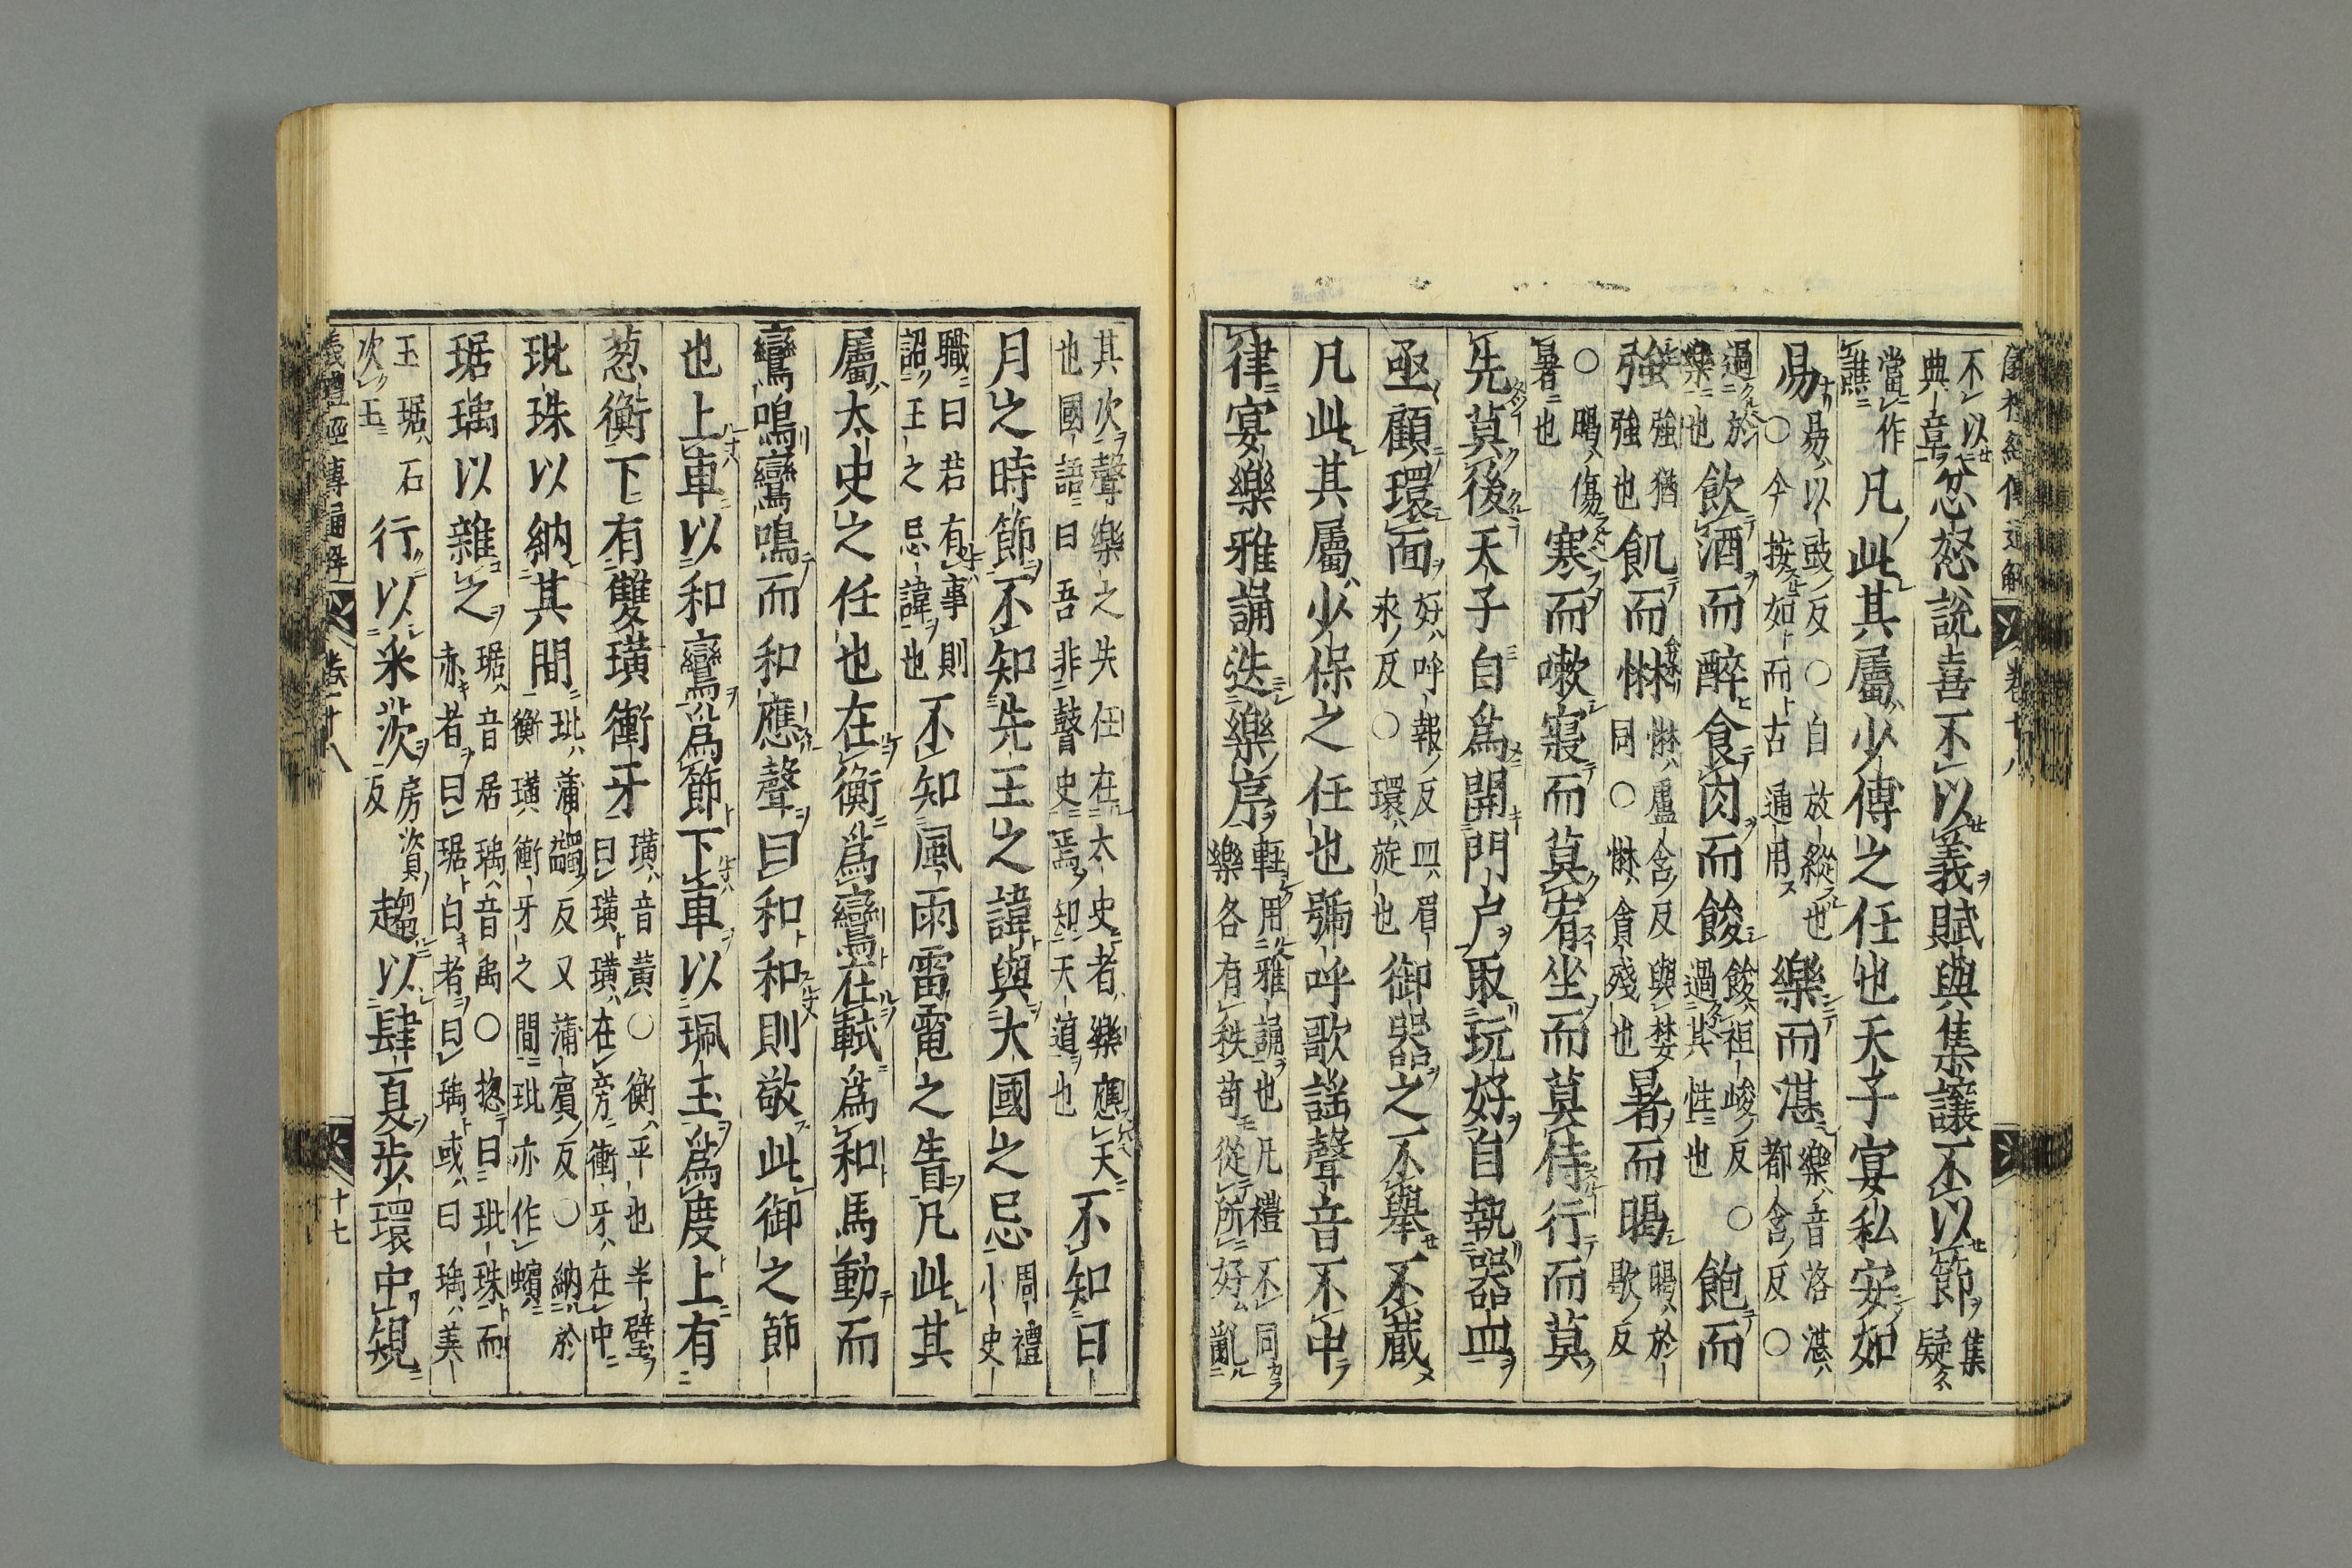 不以忿怒說喜不以義賦與集讓不以節集疑
典章
當作譙凡此其屬少傅之任也天子宴私安如
易易以豉反○自放縱也○今按如而古通用樂而湛樂音洛湛都含反○
過於樂也飲酒而醉食肉而餕餕祖峻反○過其性也飽而
強強猶強也飢而惏惏盧含反與婪同○惏貪殘也暑而暍暍於歇反
○暍傷暑也寒而嗽寢而莫宥坐而莫侍行而莫
先莫後天子自爲開門戶取玩好自執器皿
亟顧環面好呼報反皿眉永反○環旋也御器之不舉不藏
凡此其屬少保之任也號呼歌謠聲音不中
律宴樂雅誦迭樂序輊用雅誦也凡禮不同樂各有秩苟從所好亂
其次聲樂之失任在太史者樂應天也國語曰吾非瞽史焉知天道也不知日
月之時節不知先王之諱與大國之忌周禮小史
職曰若有事則詔王之忌諱也不知風雨雷電之眚凡此其
屬太史之任也在衡爲鸞在軾爲和馬動而
鸞鳴鸞鳴而和應聲曰和和則敬此御之節
也上車以和鸞爲節下車以珮玉爲度上有
葱衡下有雙璜衝牙璜音黃○衡平也半璧曰璜璜在旁衝牙在中
玭珠以納其間玭蒲蠲反又蒲賓反○納於衡璜衝牙之間玭亦作蠙
琚瑀以雜之琚音居瑀音禹○摠曰玭珠而赤者曰琚白者曰瑀或曰瑀美
玉琚石次玉行以采茨房資反趨以肆夏步環中規
儀禮經傳通解 卷廿八 十七